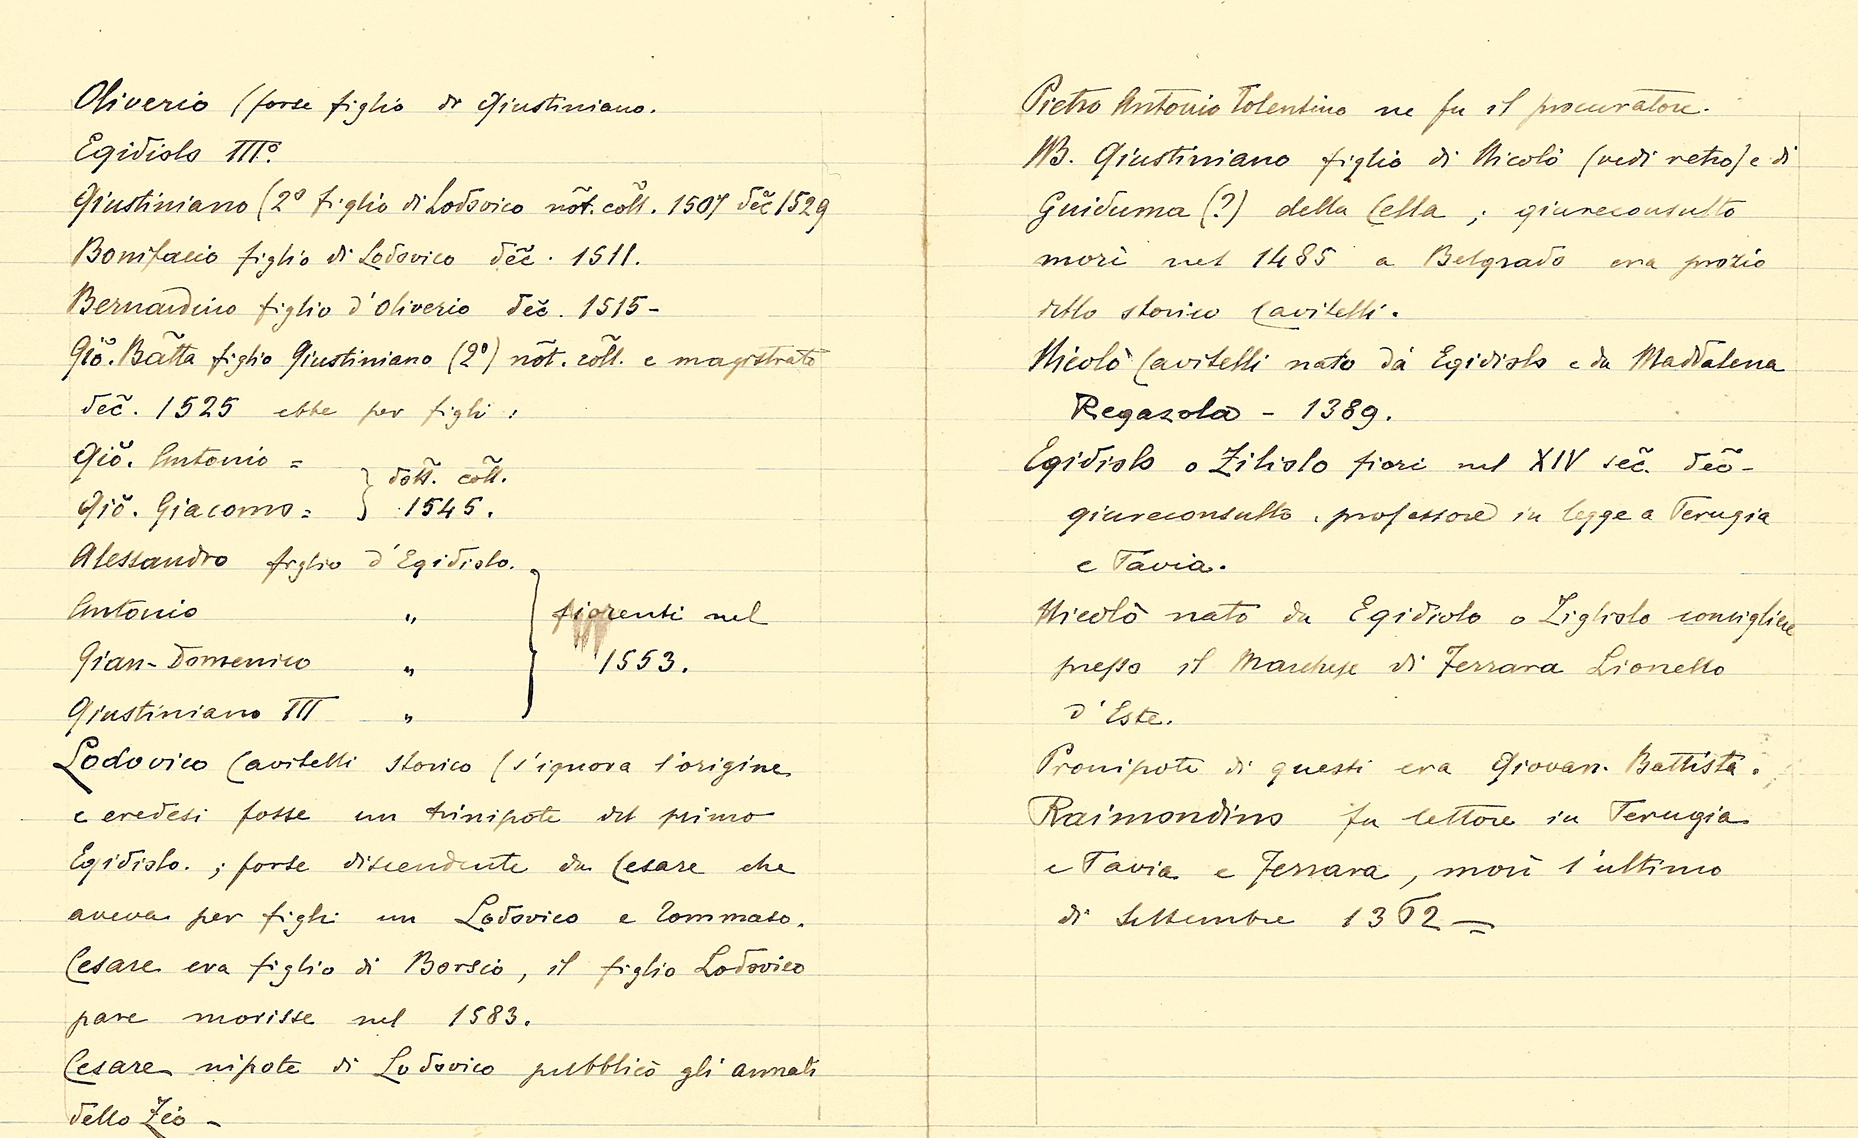 Oliverio (forse figlio di Giustiniano.
Egidiolo IIIº.
Giustiniano (2º figlio di Lodovico nõt. coll. 1507 dec̃ 1529
Bonifacio figlio di Lodovico dec̃. 1511.
Bernardino figlio d'Oliverio dec̃. 1515-
Giõ. Bãtta figlio Giustiniano (2º) nõt. cõll. e magistrato
dec̃. 1525 ebbe per figli:
Giõ. Antonio =
dott. cõll.
Giõ. Giacomo =
1545.
Alessandro figlio d'Egidiolo.
Antonio "
fiorenti nel
Gian-Domenico "
1553.
Giustiniano III "
Lodovico Cavitelli storico (s'ignora l'origine
e credesi fosse un trinipote del primo
Egidiolo. ; forse discendente da Cesare che
aveva per figli un Lodovico e Tommaso.
Cesare era figlio di Borsio, il figlio Lodovico
pare morisse nel 1583.
Cesare nipote di Lodovico pubblicò gli annali
dello Zio -
Pietro Antonio Tolentino ne fu il procuratore.
NB. Giustiniano figlio di Nicolò (vedi retro) e di
Guiduma (?) della Cella ; giureconsulto
morì nel 1485 a Belgrado era prozio
dello storico Cavitelli.
Nicolò Cavitelli nato da Egidiolo e da Maddalena
Regazola - 1389.
Egidiolo o Ziliolo fiorì nel XIV sec̃. dec̃-
giureconsulto . professore in legge a Perugia
e Pavia.
Nicolò nato da Egidiolo o Zigliolo consigliere
presso il Marchese di Ferrara Lionello
d'Este.
Pronipote di questi era Giovan. Battista.
Raimondino fu lettore in Perugia
e Pavia e Ferrara, morì l'ultimo
di Settembre